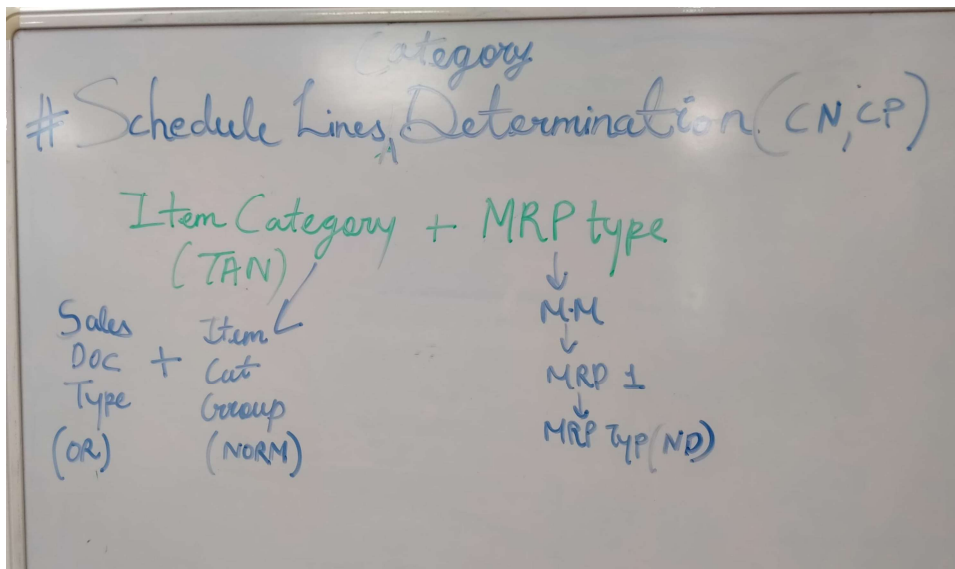 Category
# Schedule Lines ^ Determination (CN, CP)
Item Category + MRP type
(TAN)
Sales Doc Type + Item Cat Group
(OR) (NORM)
↓
M.M
↓
MRP 1
↓
MRP Typ(ND)